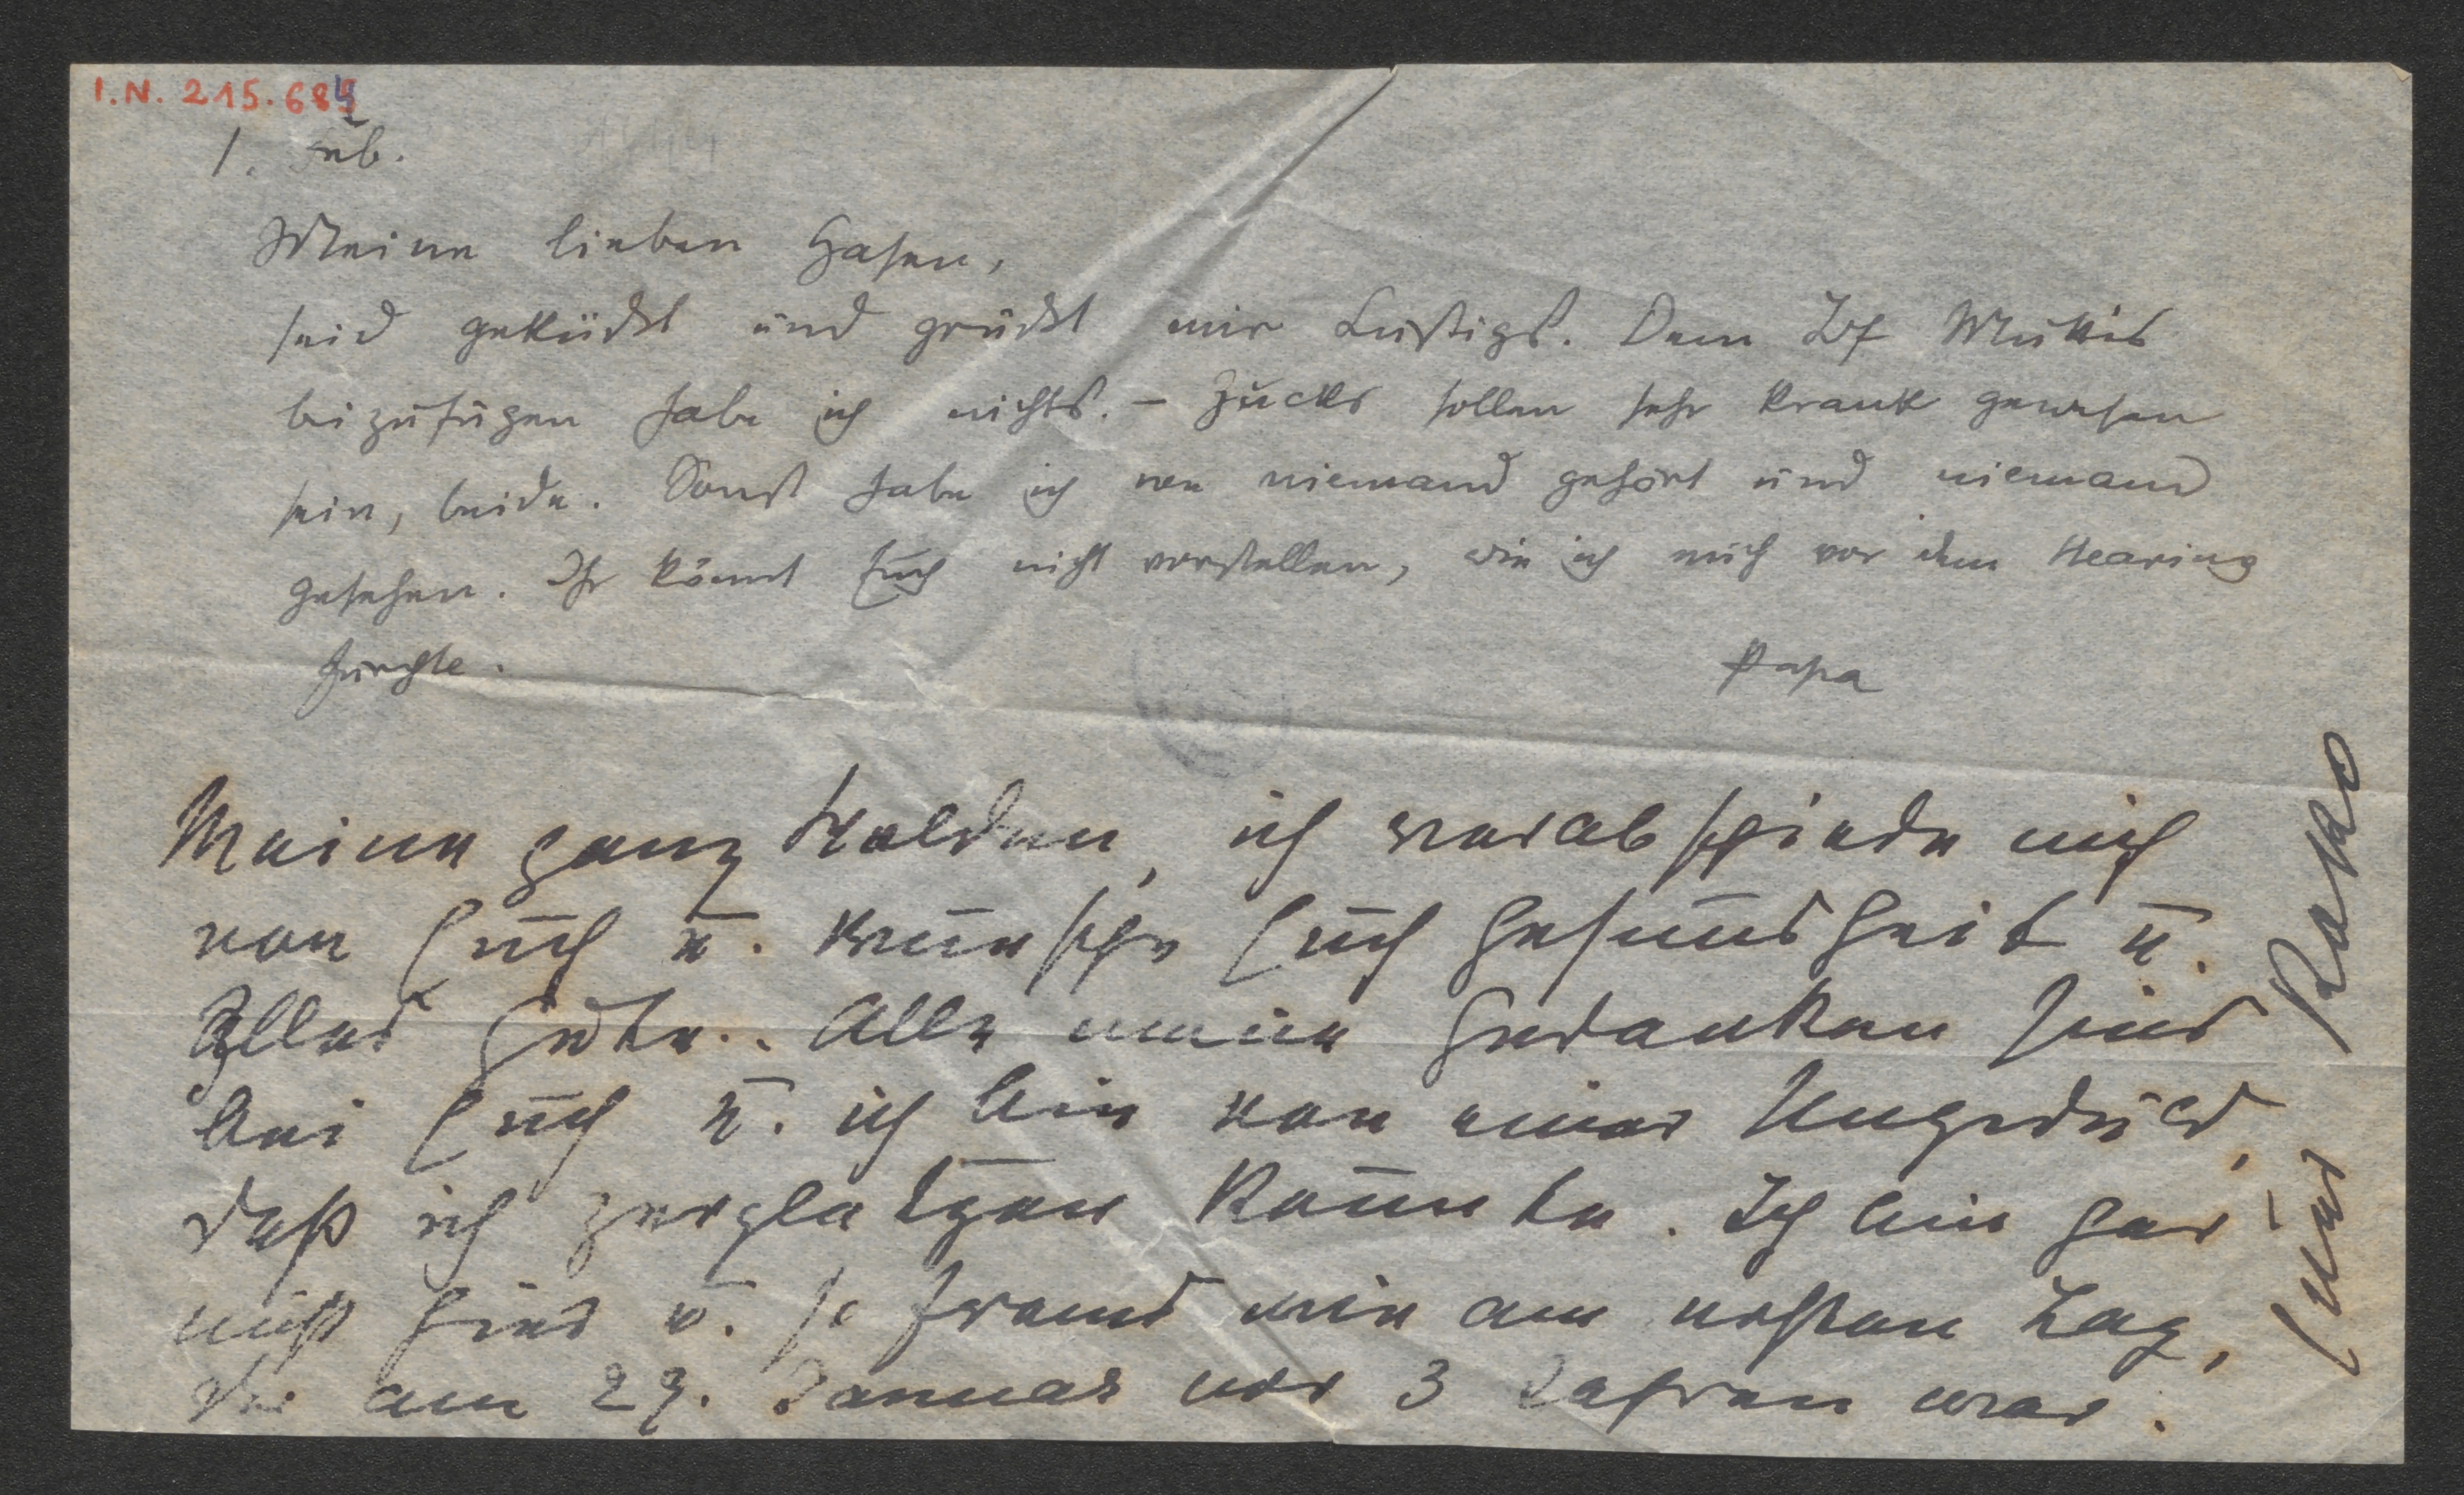 I.N. 215.684
1. Feb.
Meine lieben Hasen,
seid geküsst und grüsst mir Lustigs. Dem Bf Mukkis
beizufügen habe ich nichts. – Zucks sollen sehr krank gewesen
sein, beide. Sonst habe ich von niemand gehört und niemand
gesehen. Ihr könnt Euch nicht vorstellen, wie ich mich vor dem Hearing
fürchte.
Papa
Meine ganz Holden, ich verabschiede mich
von Euch u. wünsche Euch Gesundheit u.
Alles Gute. Alle meine Gedanken sind
bei Euch u. ich bin von einer Ungeduld,
daß ich zerplatzen könnte. Ich bin gar
nicht hier u. so fremd wie am ersten Tag,
der am 29. Januar vor 3 Jahren war.
Eure